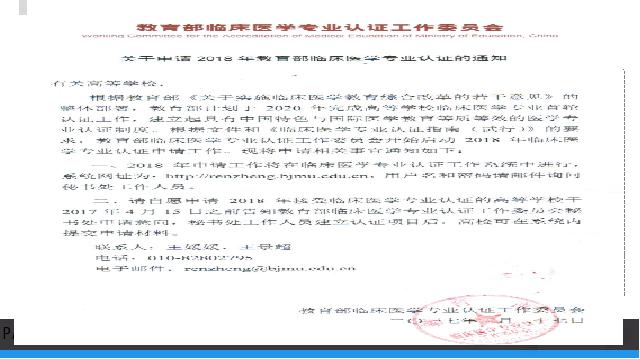 教育部临床医学专业认证工作委员会
Working Committee for the Accreditation of Medical Education of Ministry of Education, China
关于申请 2018 年教育部临床医学专业认证的通知
有关高等学校：
根据教育部《关于实施临床医学教育综合改革的若干意见》的
整体部署，教育部计划于 2020 年完成高等学校临床医学专业首轮
认证工作，建立起具有中国特色与国际医学教育等质等效的医学专
业认证制度。根据文件和《临床医学专业认证指南（试行）》的要
求，教育部临床医学专业认证工作委员会开始启动 2018 年临床医
学专业认证申请工作。现将申请相关事宜通知如下：
一、2018 年申请工作将在临床医学专业认证工作系统中进行，
系统网址为：http://renzheng.bjmu.edu.cn，用户名和密码请邮件询问
秘书处工作人员。
二、请自愿申请 2018 年接受临床医学专业认证的高等学校于
2017 年 4 月 15 日之前告知教育部临床医学专业认证工作委员会秘
书处申请意向，秘书处工作人员建立认证项目后，高校可在系统内
提交申请材料。
联系人：王媛媛、王景超
电话：010-82802798
电子邮件：renzheng@bjmu.edu.cn
教育部临床医学专业认证工作委员会
二〇一七年 月 十七日